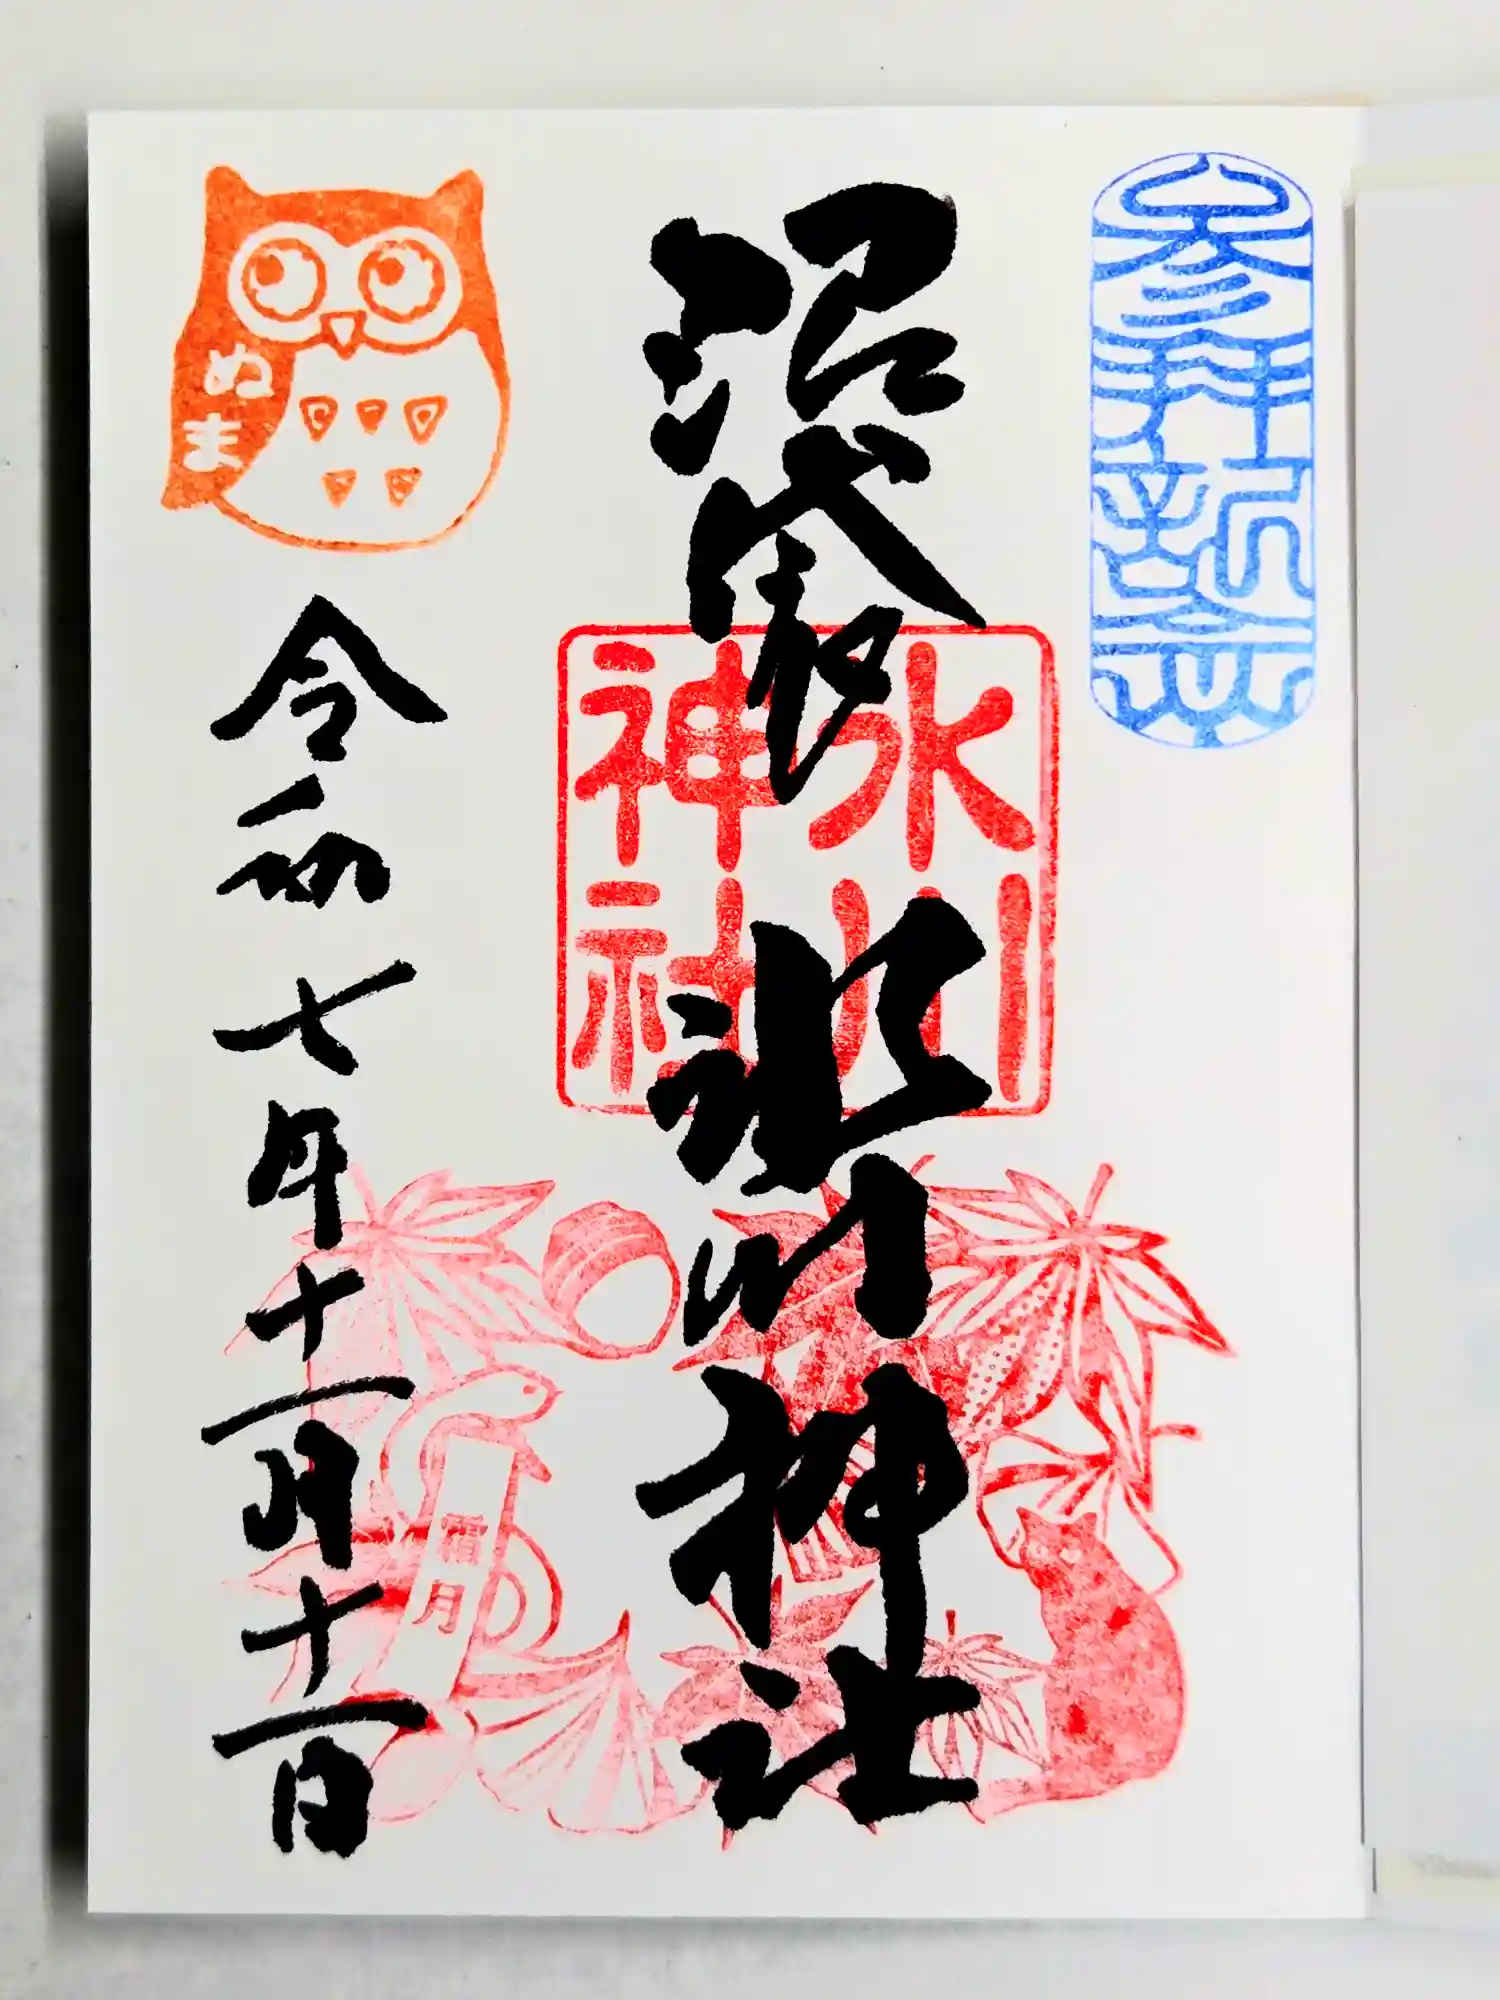 参拝記念
沼袋氷川神社
氷川
神社
ぬま
令和七年十一月十一日
霜月